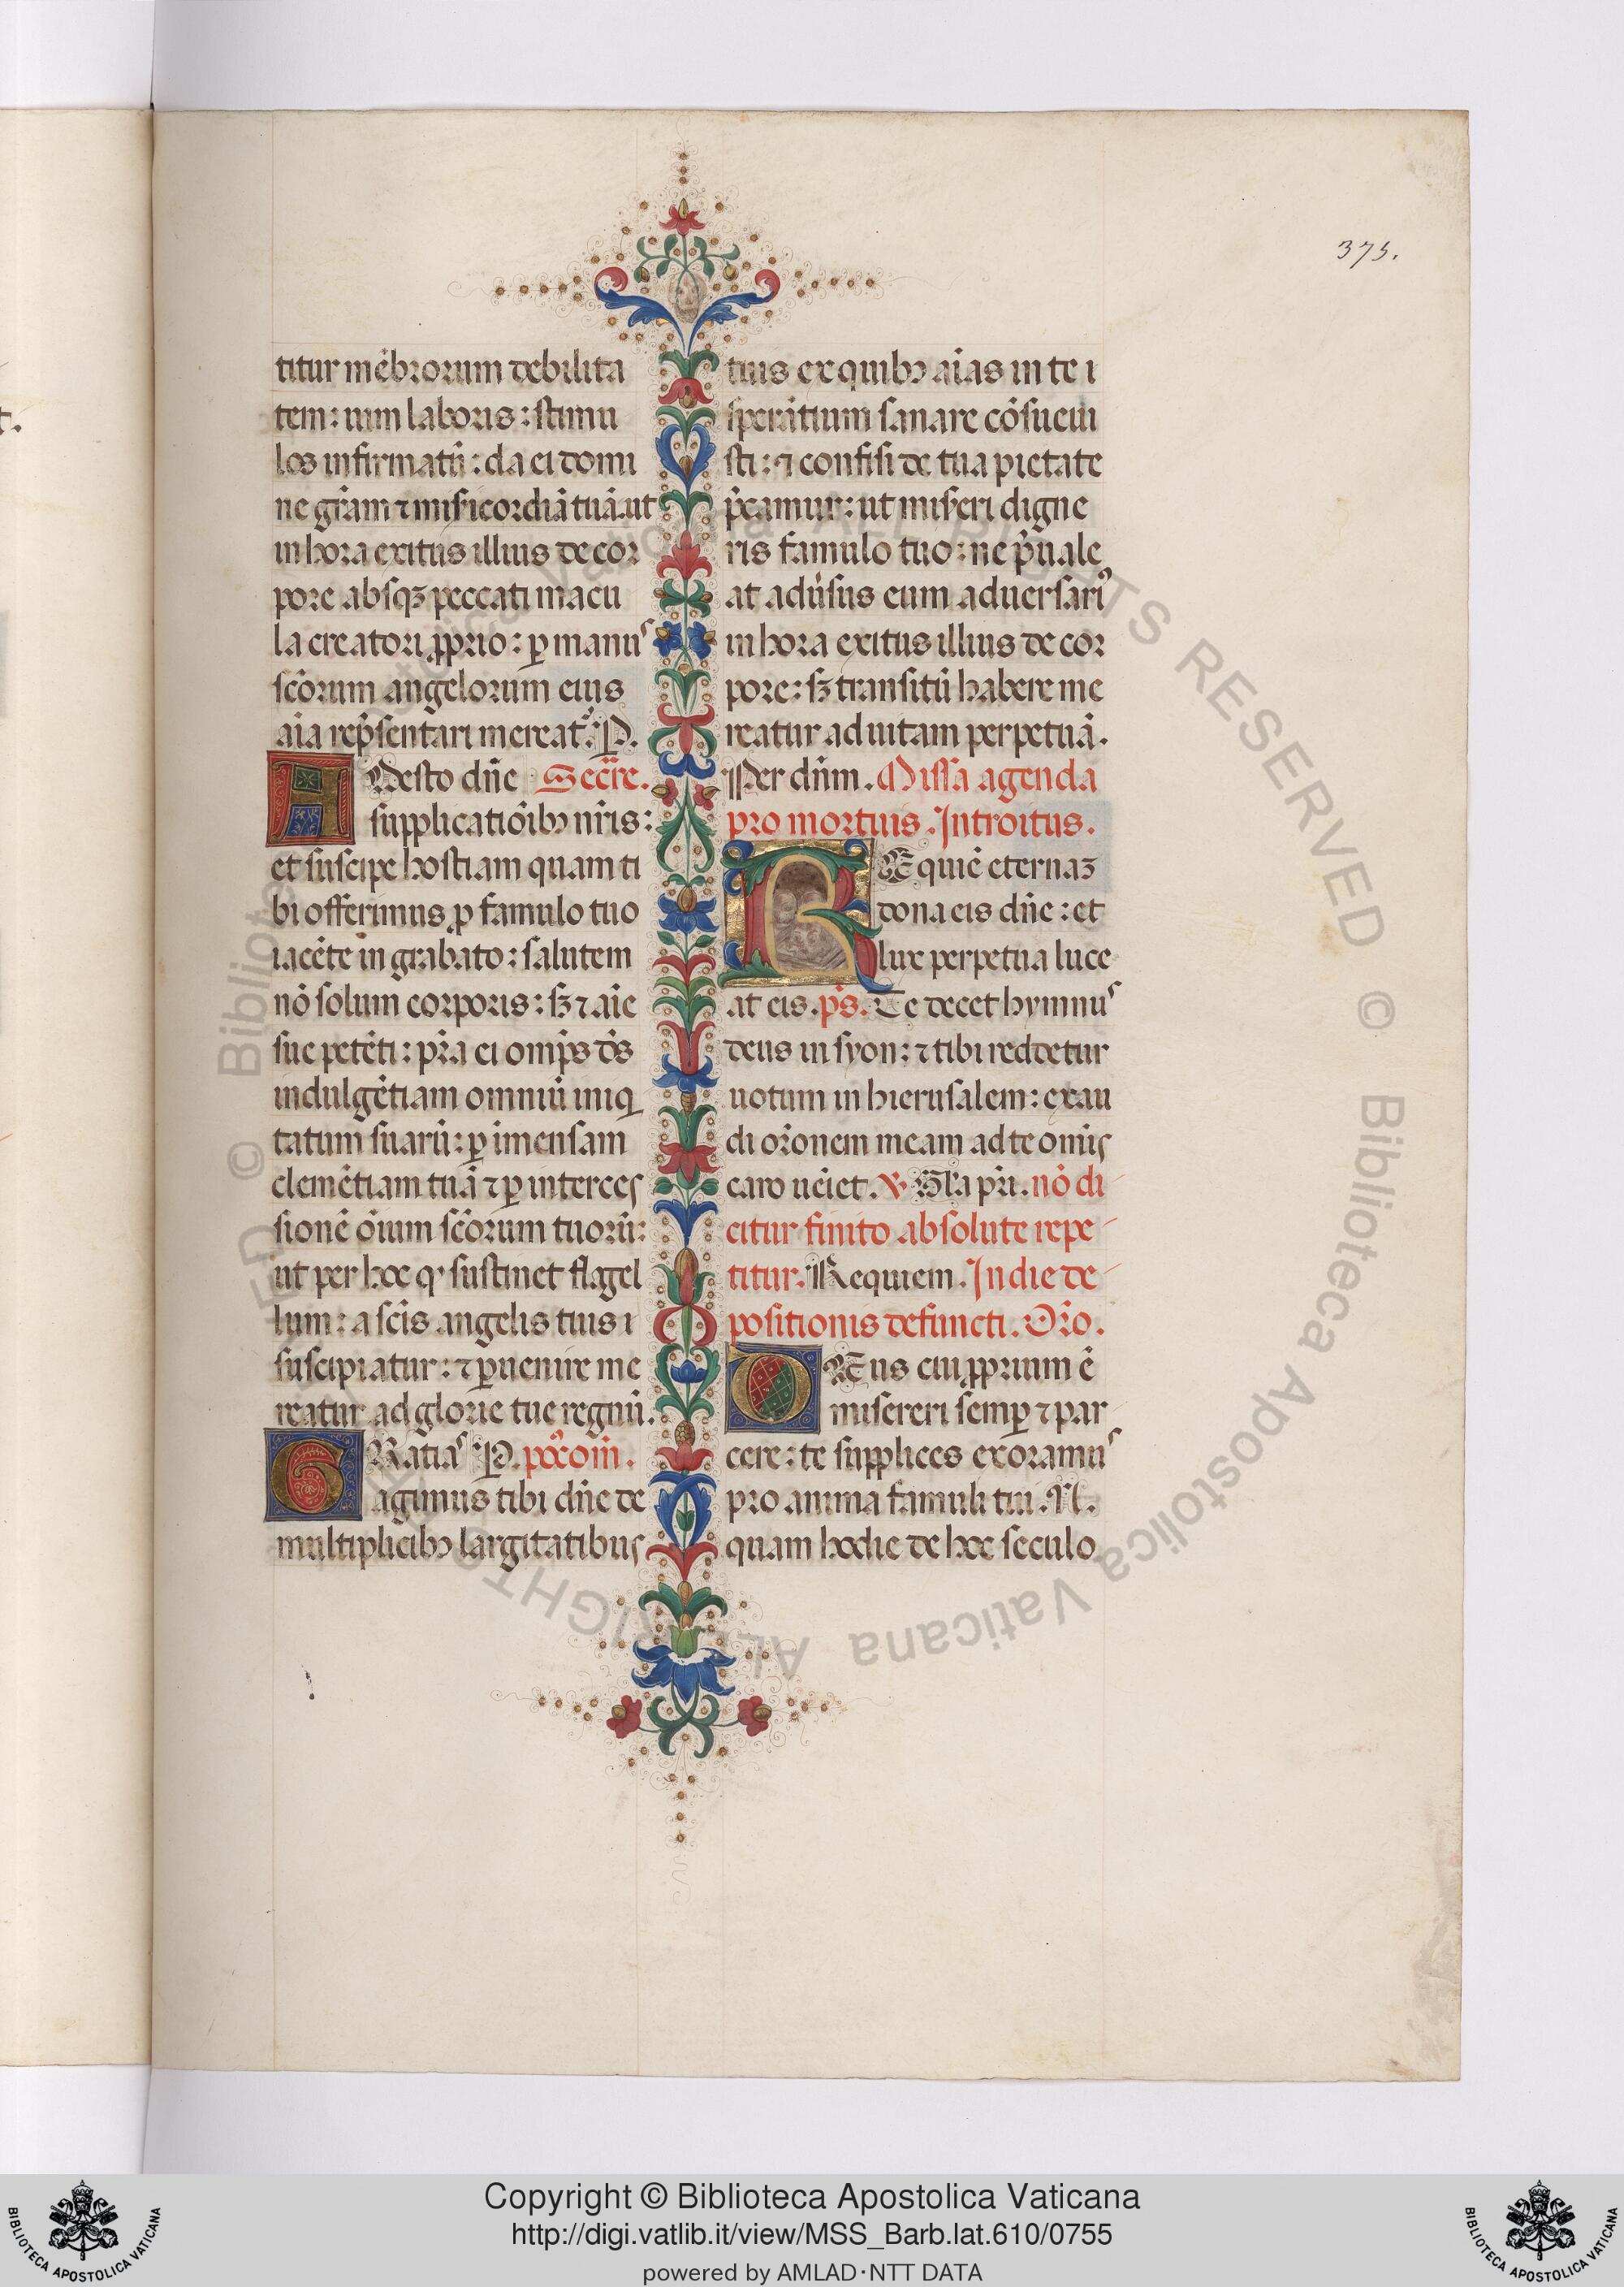 375.
titur mēbrorum debilita
tem: uim laboris: stimu
los infirmatū: da ei domi
ne grām ⁊ mīsicordiā tuā. ut
in hora exitus illius de cor
pore absqꝫ peccati macu
la creatori ꝓprio: ꝑ manuˢ
scōrum angelorum eius
aīa repn̄sentari mereat᷑. P.
ADesto dn̄e Secre.
supplicatiōibꝫ nr̄is:
et suscipe hostiam quam ti
bi offerimus ꝓ famulo tuo
iacēte in grabato: salutem
nō solum corporis: sꝫ ⁊ aīe
sue petēti: pr̄a ei omp̄s ds̄
indulgētiam omniū iniq
tatum suarū: ꝑ imensam
clemētiam tuā ⁊ ꝑ interces
sionē ōium scōrum tuorū:
ut per hoc qͥ sustinet flagel
lum: a scīs angelis tuis i
suscipiatur: ⁊ ꝑuenire me
reatur ad glorie tue regnū.
GRatiaˢ P. pꝰcoīn.
agimus tibi dn̄e de
multiplicibꝫ largitatibus
tuis ex quibꝫ aīas in te i
sperātium sanare cōsueui
sti: ⁊ confisi de tua pietate
p̄camur: ut miseri digne
ris famulo tuo: ne p̄uale
at adūsus eum aduersariꝰ
in hora exitus illius de cor
pore: sꝫ transitū habere me
reatur ad uitam perpetuā.
Per dn̄m. Missa agenda
pro mortuis. Introitus.
REquiē eternaꝫ
dona eis dn̄e: et
lux perpetua luce
at eis. ps̄. Te decet hymnuˢ
deus in syon: ⁊ tibi reddetur
uotum in hierusalem: exau
di orōnem meam ad te omīs
caro uēiet. ℣ Gl̄a pr̄i. nō di
citur finito absolute repe
titur. Requiem. In die de
positionis defuncti. Orō.
DEus cui ꝓprium ē
misereri semꝑ ⁊ par
cere: te supplices exoramuˢ
pro anima famuli tui. N.
quam hodie de hoc seculo
Copyright © Biblioteca Apostolica Vaticana
http://digi.vatlib.it/view/MSS_Barb.lat.610/0755
powered by AMLAD·NTT DATA